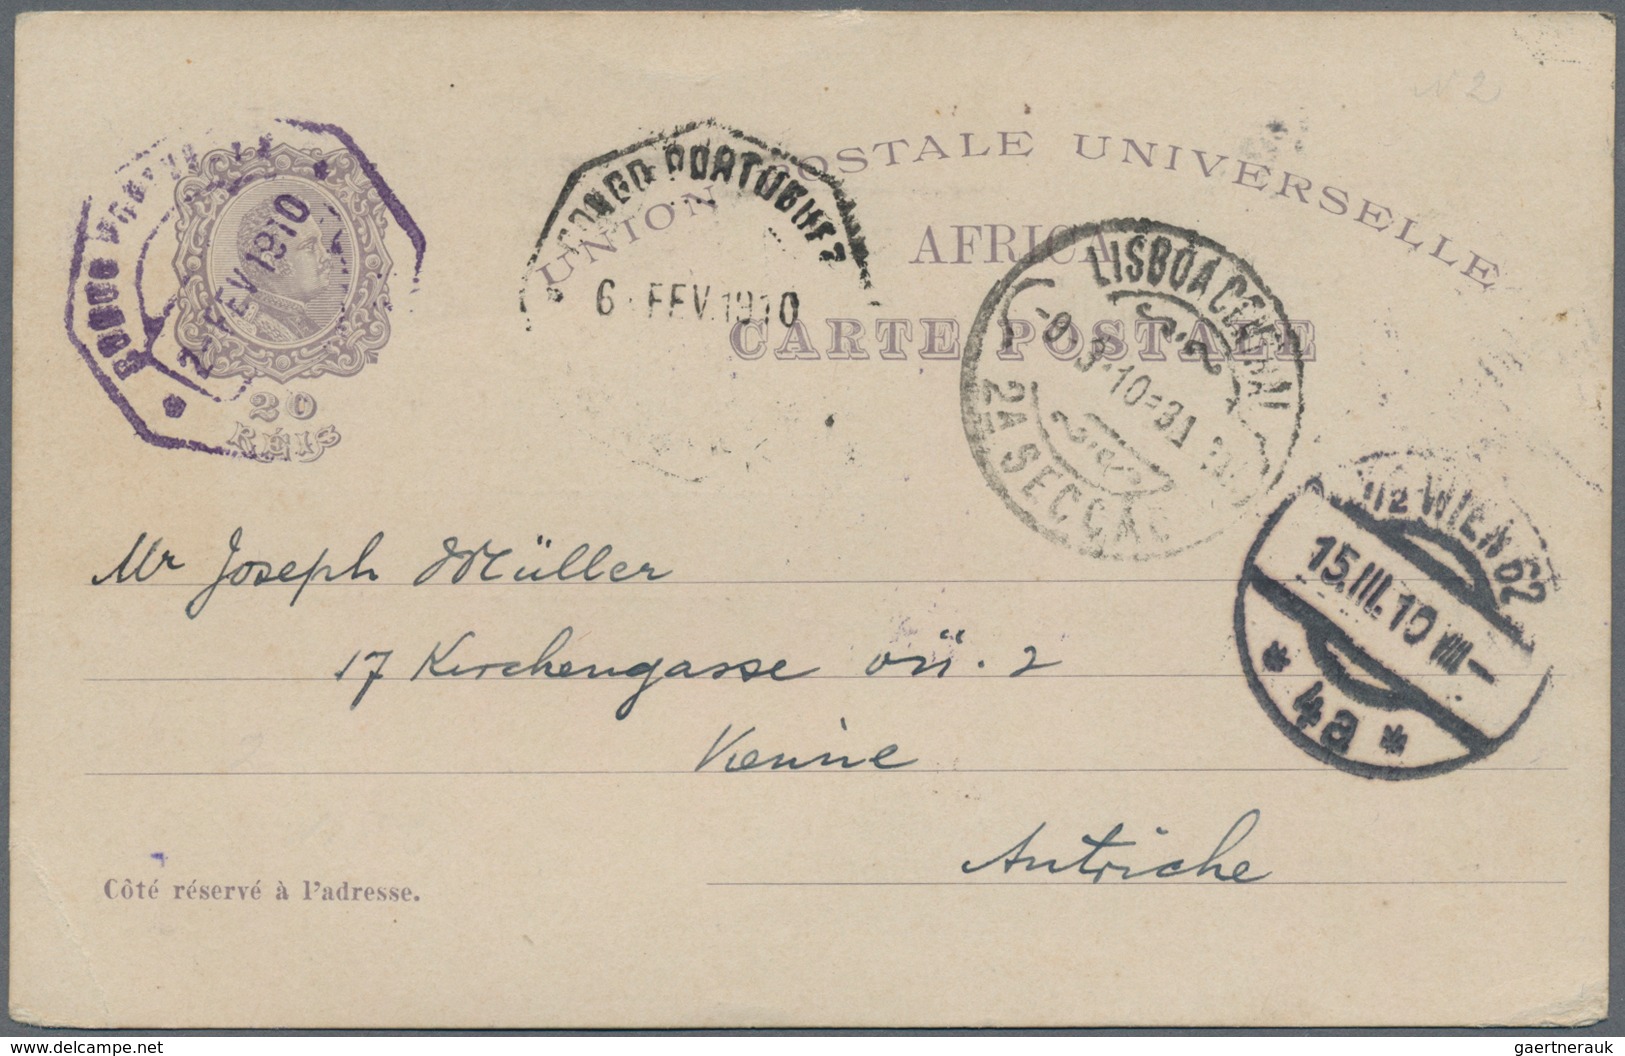 N 2
UNION POSTALE UNIVERSELLE
AFRICA
CARTE POSTALE
2 FEV. 1910
20
RÉIS
CONGO PORTUGUEZ
6 FEV. 1910
LISBOA CENTRAL
-9.3.10=3
2A SECÇÃO
1/2 WIEN 62
15.III.10 VIII-
* 4a *
Mr Joseph Müller
17 Kirchengasse
Vienne
Autriche
Côté réservé à l'adresse.
www.delcampe.net
gaertnerauk